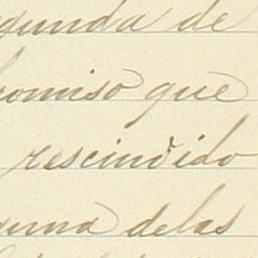 gunda de
romiso que
rescindido
guna delas